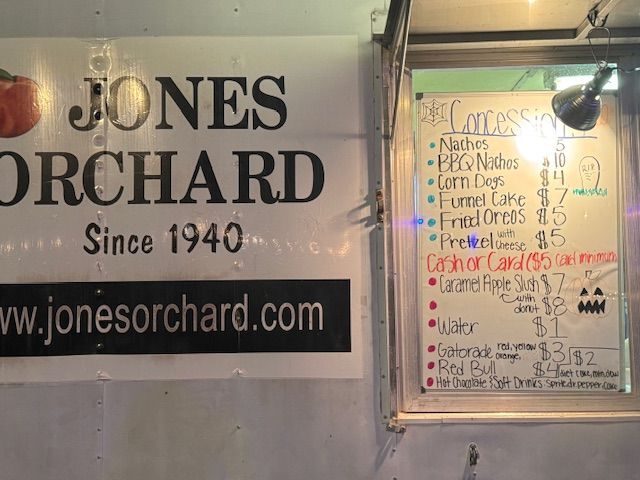 JONES
ORCHARD
Since 1940
ww.jonesorchard.com
Concession
Nachos $5
BBQ Nachos $10
Corn Dogs $4
Funnel Cake $7
Fried Oreos $5
Pretzel with cheese $5
Cash or Card ($5 card minimum
Caramel Apple Slush $7
with donut $8
Water $1
Gatorade red, yellow orange, $3
$2
Red Bull $4
diet coke, mtn. dew
Hot Chocolate & Soft Drinks: sprite, dr. pepper, coke
RIP